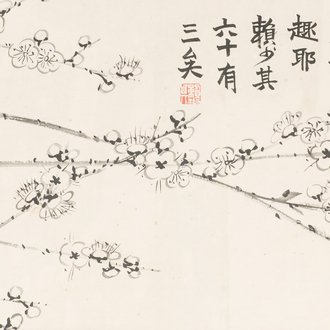 趣耶
賴少其
六十有
三矣